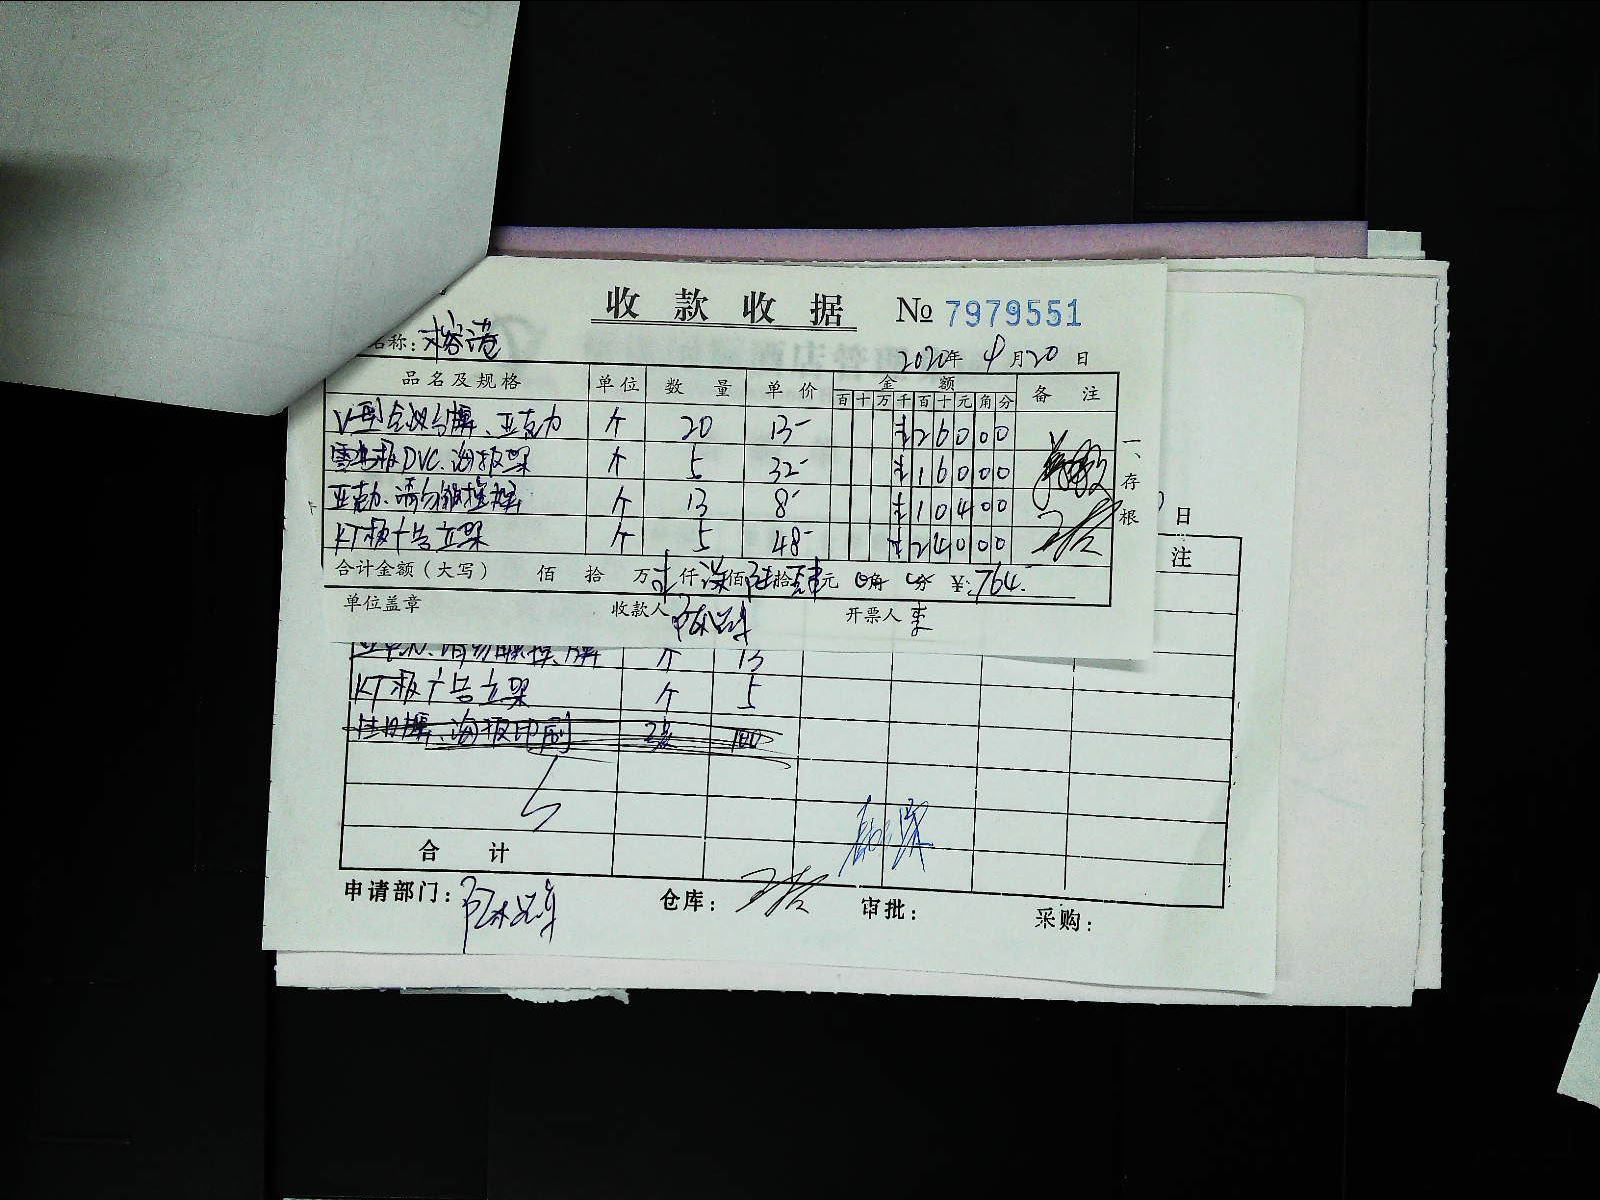 收款收据 № 7979551
名称: 榕港
2020年 4月20日
品名及规格 单位 数量 单价 金额 备注
百 十 万 千 百 十 元 角 分
V型会议台牌、亚克力 个 20 13- ¥ 2 6 0 0 0
雪弗板DVC.海报架 个 5 32- ¥ 1 6 0 0 0
亚克力.请勿触摸牌 个 13 8- ¥ 1 0 4 0 0
KT板广告立架 个 5 48- ¥ 2 4 0 0 0
合计金额（大写） 佰 拾 万 仟 柒佰 陆拾 肆元 0角 0分 ¥:764-
单位盖章 收款人 开票人 李
一、存根
日
注
亚克力.请勿触摸.牌 个 13
KT板广告立架 个 5
海报印刷 张 100
合计
申请部门: 仓库: 审批: 采购: